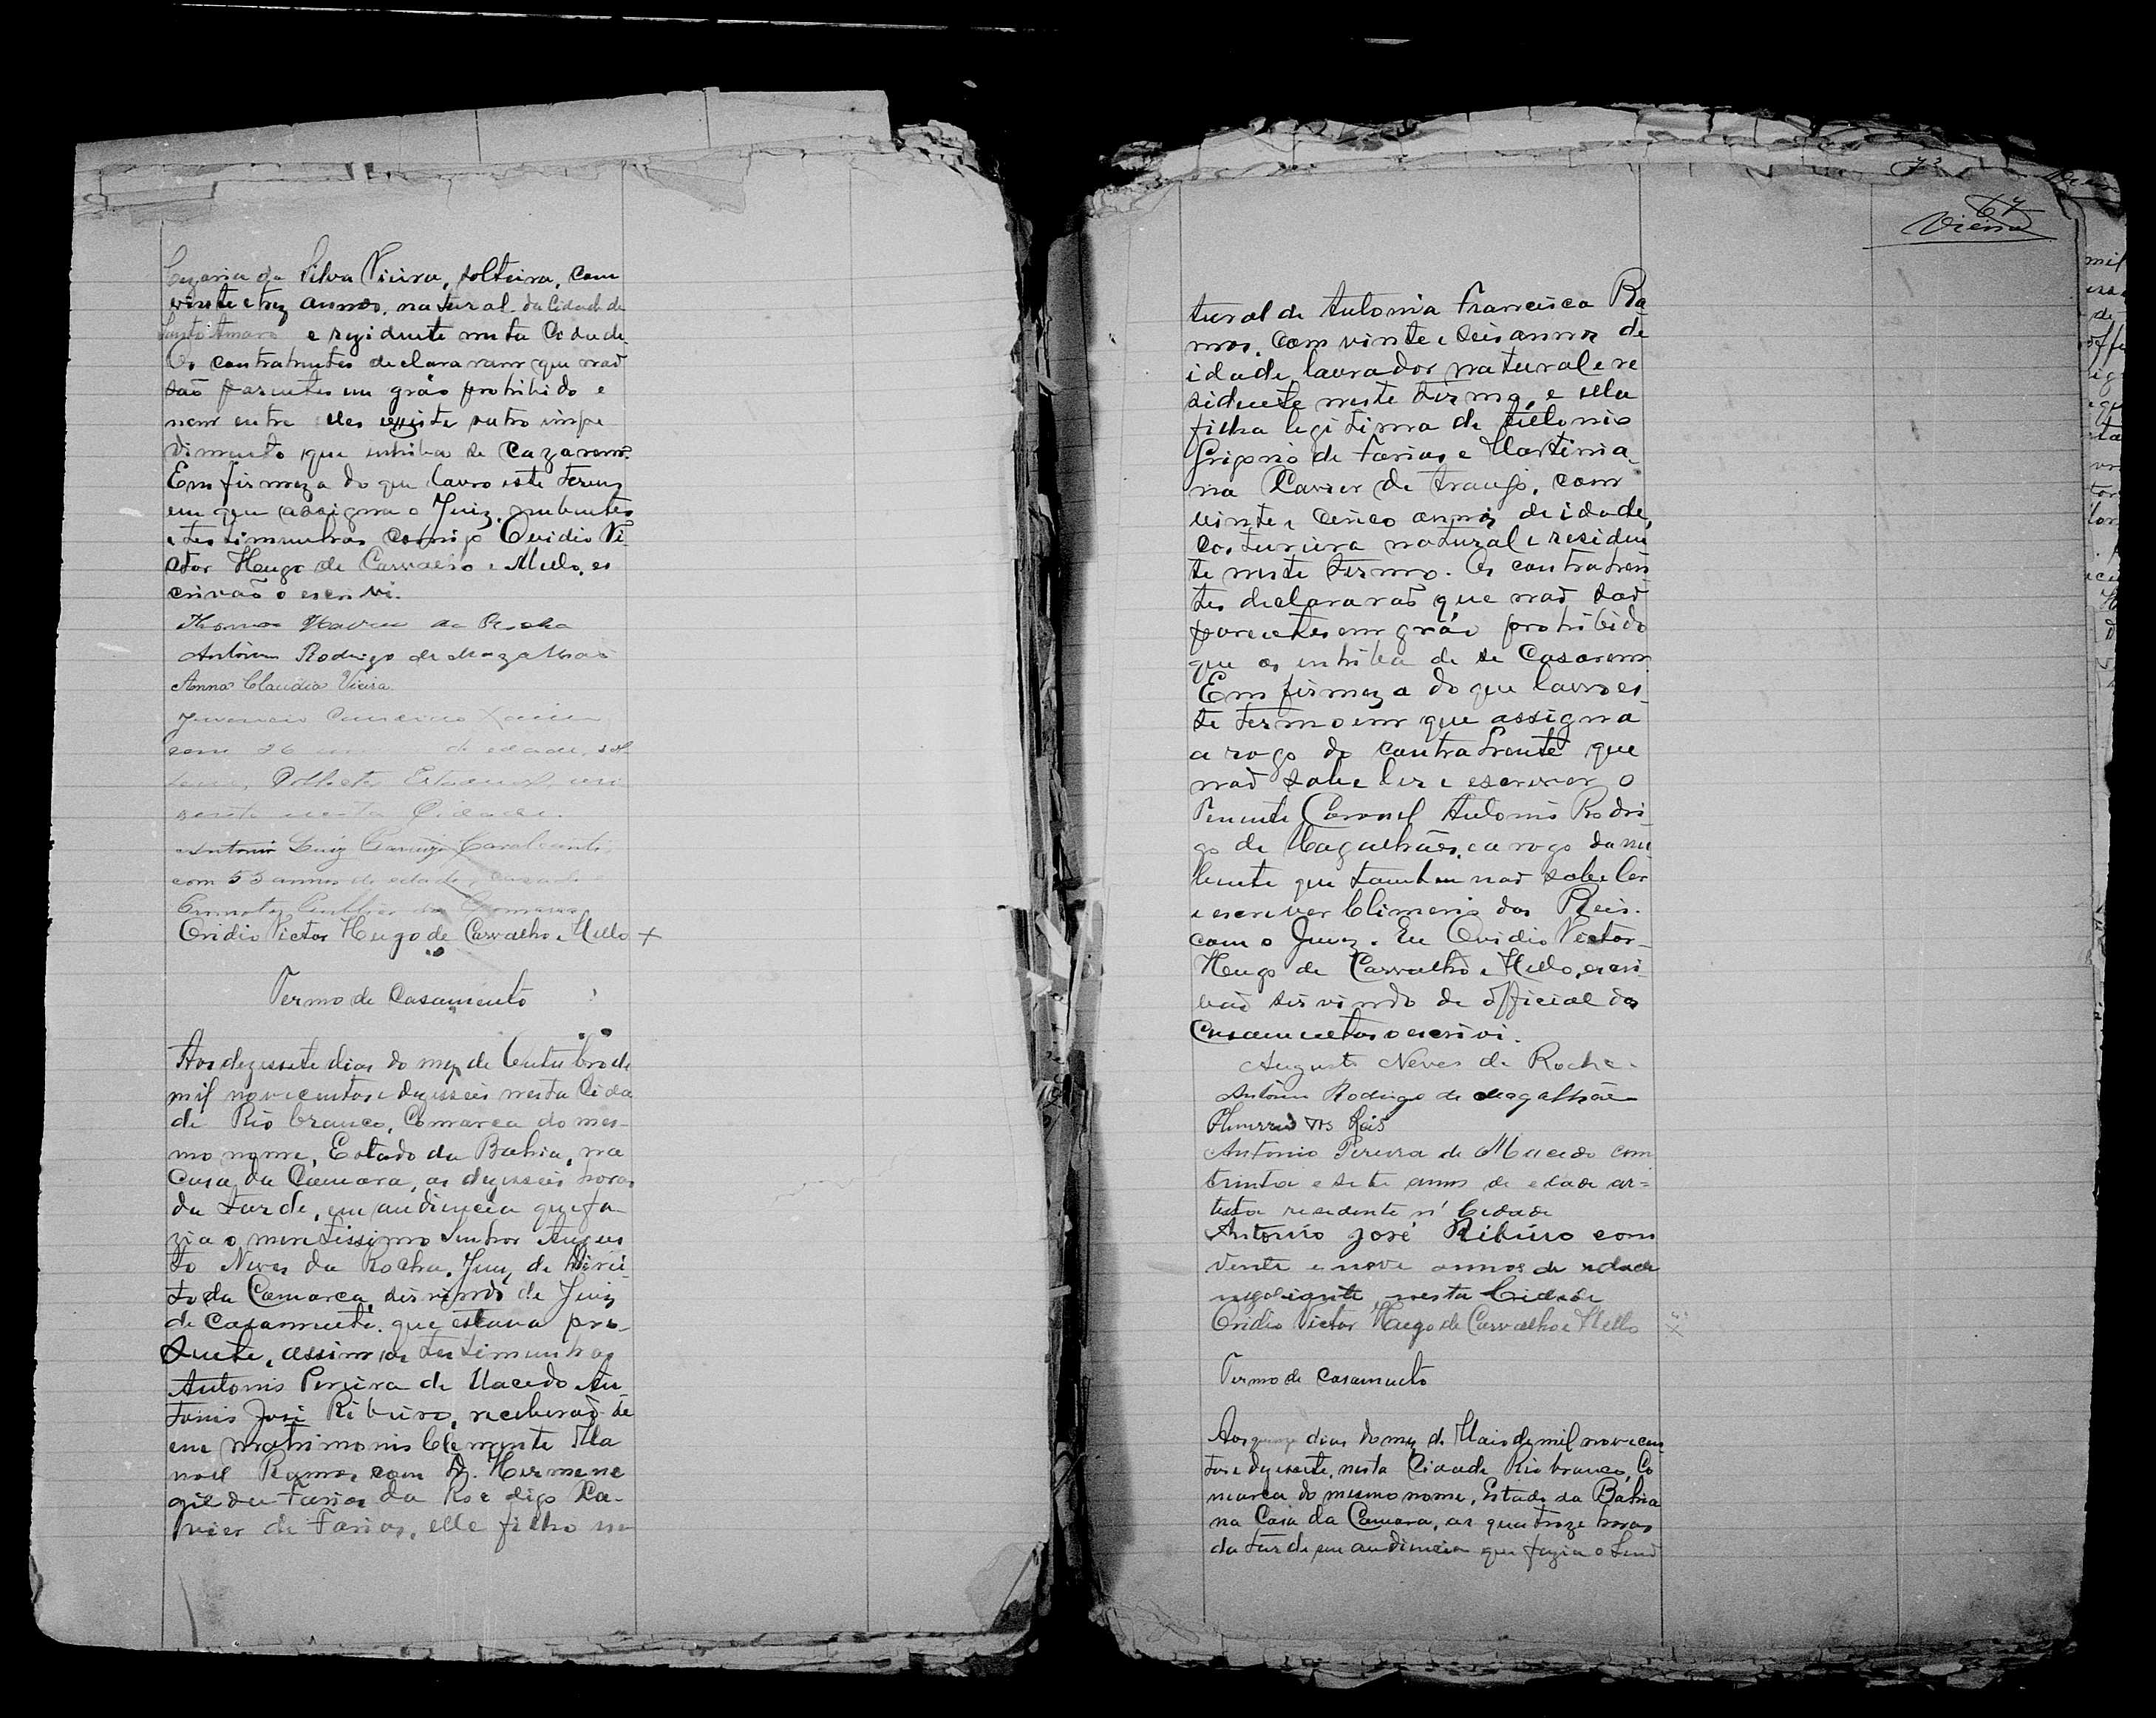 Cezaria da Silva Vieira, solteira, com
vinte e trez annos, natural da Cidade de
Santo Amaro e rezidente nesta Cidade.
Os contratentes declararam que naõ
saõ parentes em gráo prohibido e
nem entre elles existe outro impe
dimento que inhiba de Cazarem.
Em firmeza do que lavro este termo
em que assigna o Juiz, nubentes
e testimunhas comigo Ovidio Vi-
ctor Hugo de Carvalho e Mello, es
crivaõ o escrevi.
Neves da Rocha
Antonio Rodrigo de Magalhães
Anna Claudia Vieira
Juvencio
com 26 annos de edade, sol
teiro, Collector Estadual, resi
dente nesta Cidade.
Antonio Luiz Cavalcanti
com 53 annos de edade, casado e
Promotor Publico da Comarca
Ovidio Victor Hugo de Carvalho e Mello +
Termo de Casamento
Aos dezessete dias do mez de Outubro de
mil novecentos e dezesseis nesta Cida
de Rio branco, Comarca do mes-
mo nome, Estado da Bahia, na
Casa da Camara, as dezesseis horas
da tarde, em audiencia que fa
zia o meretissimo Senhor Augus
to Neves da Rocha, Juiz de Direi-
to da Comarca, servindo de Juiz
de Casamento, que estava pre-
sente, assim as testimunhas
Antonio Pereira de Macedo An-
tonio José Ribeiro, receberaõ-se
em matrimonio Clemente Ma
noel Ramos com D. Hermene
gilda Farias da Ro e digo Xa-
vier de Farias, elle filho na
73
67
Vieira
tural de Antonia Francisca Ra
mos, com vinte e seis annos de
idade, lavrador natural e re
sidente neste termo, e ella
filha legitima de Antonio
Grigorio de Farias e Martinia-
na Xavier de Araujo, com
vinte e cinco annos de idade,
costureira natural e residen
te neste termo. Os contraten
tes declararaõ que naõ saõ
parentes em gráo prohibido
que os inhiba de se Casarem.
Em firmeza do que lavro es
te termo em que assigna
a rogo do contratente que
naõ sabe ler e escrever o
Tenente Coronel Antonio Rodri-
go de Magalhães, e a rogo da nu
bente que tambem naõ sabe ler
e escrever Climerio dos Reis.
com o Juiz. Eu Ovidio Victor
Hugo de Carvalho e Mello, escri-
vaõ servindo de official dos
Casamentos o escrevi.
Augusto Neves da Rocha
Antonio Rodrigo de Magalhães
Climerio dos Reis
Antonio Pereira de Macedo com
trinta e sete annos de edade ar=
tista residente n' Cidade
Antonio José Ribeiro com
vinte e nove annos de edade
negociante nesta Cidade
Ovidio Victor Hugo de Carvalho e Mello
Termo de Casamento
Aos quinze dias do mez de Maio de mil novecen
tos e dezesete, nesta Cidade Rio branco, Co
marca do mesmo nome, Estado da Bahia
na Casa da Camara, as quatroze horas
da tarde em audiencia que fazia o Senr